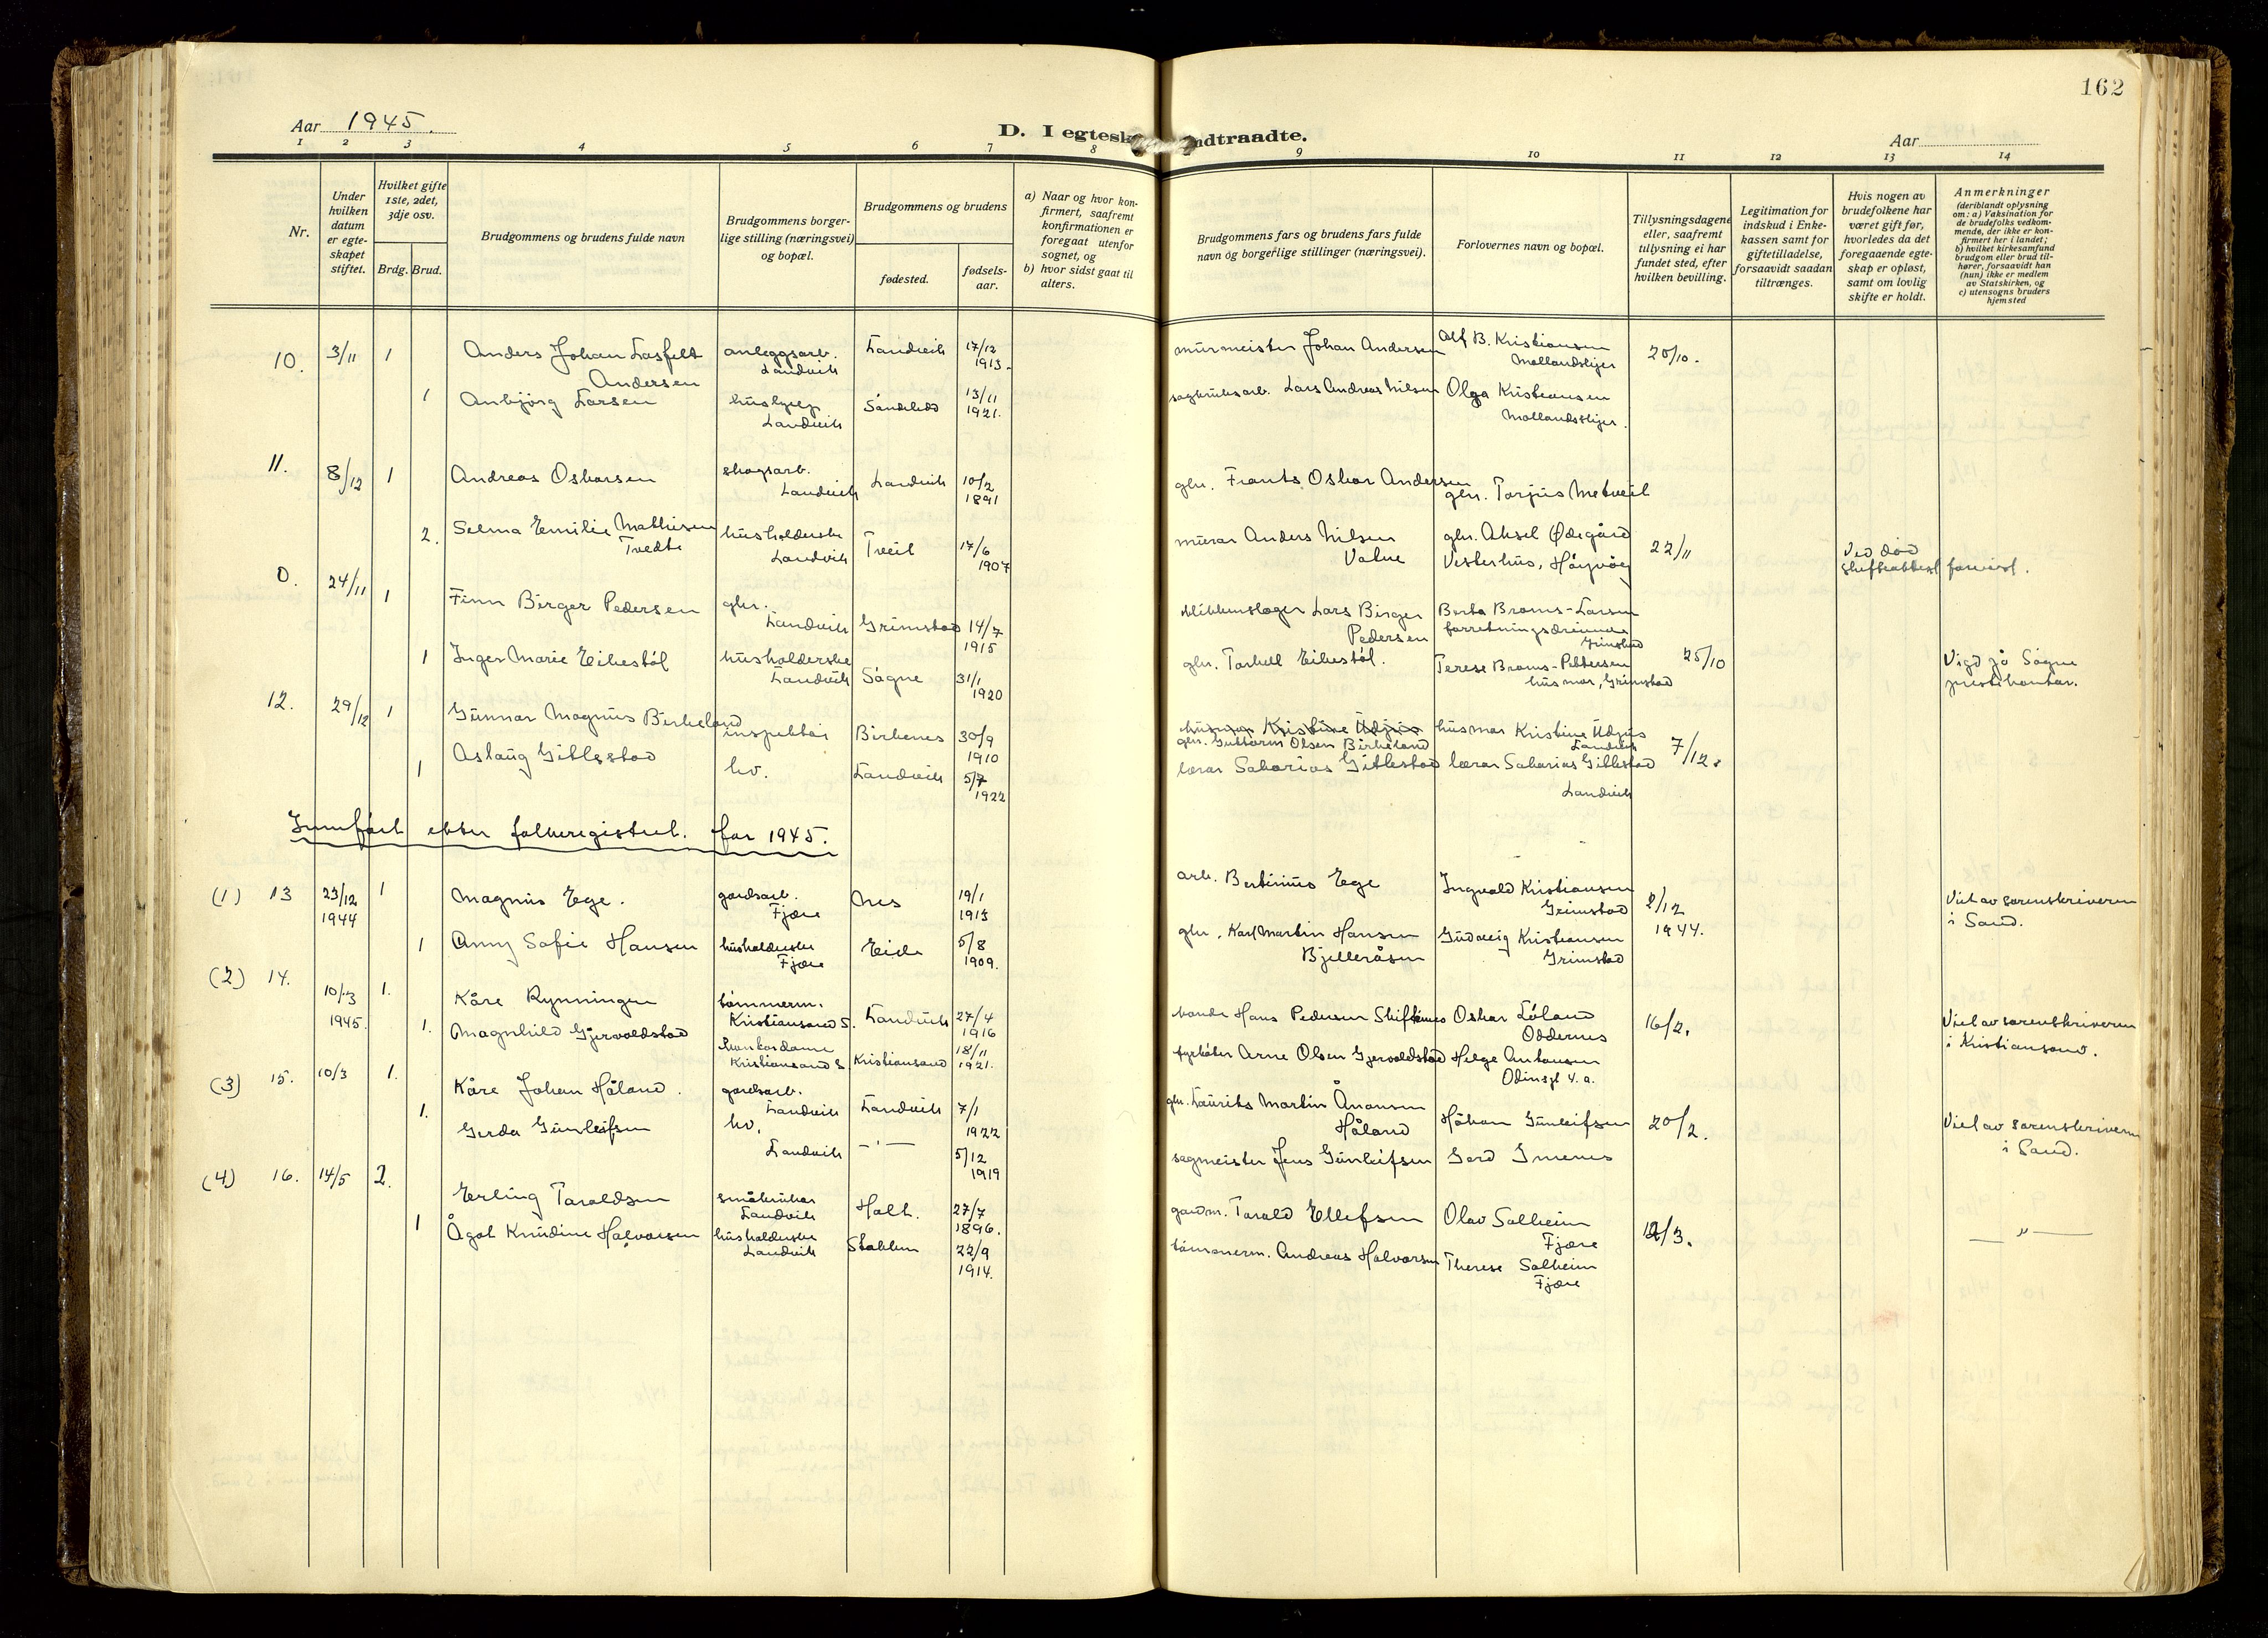 162
Aar 1945.
D. I egtesk ndtraadte.
Aar
1 2 3 4 5 6 7 8 9 10 11 12 13 14
Nr.
Under hvilken datum er egte- skapet stiftet.
Hvilket gifte 1ste, 2det, 3dje osv.
Brdg. Brud.
Brudgommens og brudens fulde navn
Brudgommens borger- lige stilling (næringsvei) og bopæl.
Brudgommens og brudens
fødested.
fødsels- aar.
a) Naar og hvor kon- firmert, saafremt konfirmationen er foregaat utenfor sognet, og
b) hvor sidst gaat til alters.
Brudgommens fars og brudens fars fulde navn og borgerlige stillinger (næringsvei).
Forlovernes navn og bopæl.
Tillysningsdagene eller, saafremt tillysning ei har fundet sted, efter hvilken bevilling.
Legitimation for indskud i Enke- kassen samt for giftetilladelse, forsaavidt saadan tiltrænges.
Hvis nogen av brudefolkene har været gift før, hvorledes da det foregaaende egte- skap er opløst, samt om lovlig skifte er holdt.
Anmerkninger (deriblandt oplysning om: a) Vaksination for de brudefolks vedkom- mende, der ikke er kon- firmert her i landet; b) hvilket kirkesamfund brudgom eller brud til- hører, forsaavidt han (hun) ikke er medlem av Statskirken, og c) utensogns bruders hjemsted
10. 3/11 1 Anders Johan Lasfelt Andersen anleggsarb. Landvik Landvik 17/12 1913. murmeister Johan Andersen Alf B. Kristiansen Mollandsligr 20/10.
1 Anbjörg Larsen Landvik Söndeled 13/11 1921. sagbruksarb. Lars Andreas Nilsen Olga Kristiansen
11. 8/12 1 Andreas Oskarsen skogsarb. Landvik Landvik 10/2 1891 gbr. Frants Oskar Andersen gbr. Torjus Metveit
2. Selma Emilie Mathisen Tvedte husholderske Landvik Tveit 17/6 1907 murar Anders Nilsen Value gbr. Aksel Ødegård Vesterhus, Høyvåg 22/11 Ved död skifteattest forevist.
0. 24/11 1 Finn Birger Pedersen gbr. Landvik Grimstad 14/7 1915 blikkenslager Lars Birger Pedersen Berta Broms-Larsen forretningsdrivende Grimstad
1 Inger Marie Eikestöl husholderske Landvik Sögne 31/1 1920 gbr. Torkell Eikestöl. Terese Broms-Pettersen husmor, Grimstad 25/10 Vigd på Sögne prestekontor.
12. 29/12 1 Gunnar Magnus Birkeland inspektör Birkenes 30/9 1910 husmor Kristine Udjus gbr. Guttorm Olsen Birkeland husmor Kristine Udjus Landvik 7/12.
1 Aslaug Gitlestad hv. Landvik 5/7 1922 lærar Sakarias Gitlestad lærar Sakarias Gitlestad Landvik
Innfört etter folkeregistret. for 1945.
(1) 13 23/12 1944 1 Magnus Ege. gardsarb. Fjære Nes 19/1 1913 arb. Bertinius Ege Ingvald Kristiansen Grimstad 2/12 1944. Viet av sorenskriveren i Sand.
1 Anny Sofie Hansen husholderske Fjære Eide 5/8 1909. gbr. Karl Martin Hansen Bjelleråsen Gudveig Kristiansen Grimstad
(2) 14. 10/3 1945. 1. Kåre Rynningen tömmerm. Kristiansand S. Landvik 27/4 1916 bonde Hans Pedersen Skiftenes Oskar Löland Oddernes 16/2. Viet av sorenskriveren i Kristiansand.
1. Magnhild Gjervoldstad kontordame Kristiansand S. Kristiansand 18/11 1921. fyrböter Arne Olsen Gjervoldstad Helge Antonsen Odinsgt 4. a.
(3) 15. 10/3 1. Kåre Johan Håland. gardsarb. Landvik Landvik 7/1 1922 gbr. Laurits Martin Ånonsen Håland Håkon Gunleifsen 20/2. Viet av sorenskriveren i Sand.
1. Gerda Gunleifsen hv. Landvik —"— 5/12 1919 sagmeister Jens Gunleifsen Gerd Imenes
(4) 16. 14/5 2. Erling Taraldsen småbruker Landvik Holt. 27/7 1896. gardm. Tarald Ellefsen Olav Solheim Fjære 12/3. —"—
1 Ågot Knudine Halvorsen husholderske Landvik Stokken 22/9 1914. tömmerm. Andreas Halvorsen Therese Solheim Fjære